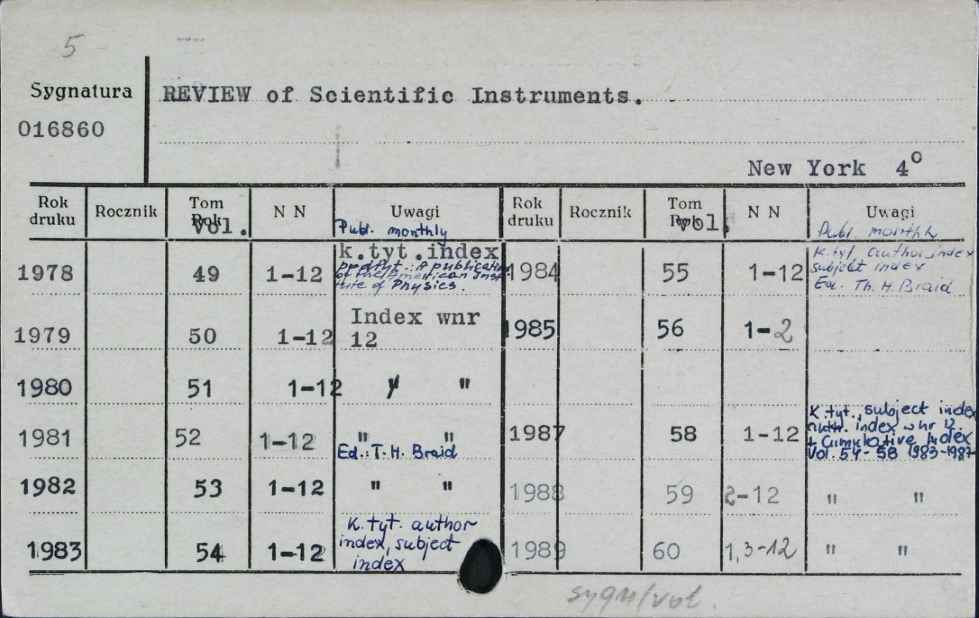 5
Sygnatura
016860
REVIEW of Scientific Instruments.
New York 4°
Rok druku Rocznik Tom Rok Vol. N N Uwagi Rok druku Rocznik Tom Rok vol. N N Uwagi
Publ. monthly
1978 49 1-12 k.tyt.index
podtyt.: A publication
of the American Insti
tute of Physics.
1979 50 1-12 Index wnr
12
1980 51 1-12 " "
1981 52 1-12 " "
Ed.: T. H. Braid
1982 53 1-12 " "
1983 54 1-12 K. tyt. author
index, subject
index
Publ. monthly
1984 55 1-12 K. tyt. author index
subject index
Ed. Th. H. Braid
1985 56 1-2
1987 58 1-12 K. tyt., subject inde
auth. index w nr 12.
+ Cumulative Index
Vol. 54-58 1983-1987
1988 59 2-12 " "
1989 60 1,3-12 " "
sygn/vol.